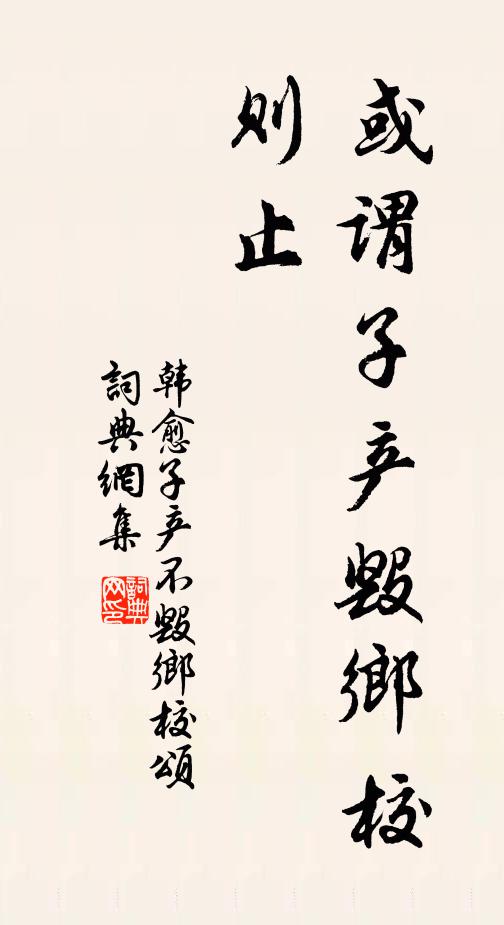 或谓子产毁鄉校
则止
韩愈子产不毁鄉校頌
詞典網集
詞典网印